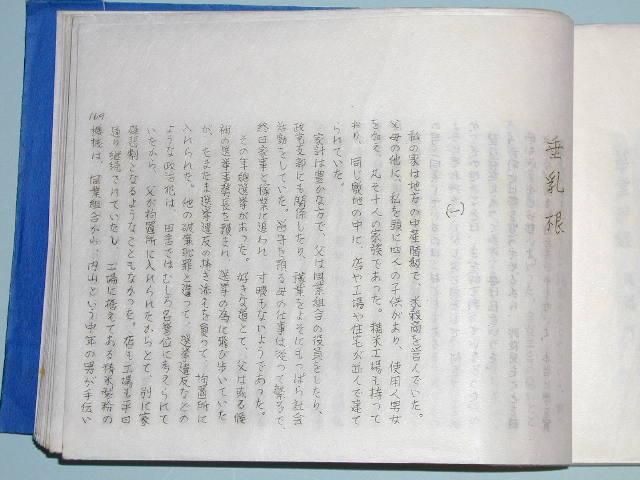 垂乳根
(一)
私の家は地方の中産階級で、米穀商を営んでいた。
父母の他に、私を頭に四人の子供があり、使用人男女
を加え、凡そ十人の家族であった。精米工場も持って
おり、同じ敷地の中に、店や工場や住宅が並んで建て
られていた。
家計は豊かな方で、父は同業組合の役員をしたり、
政党支部にも関係したり、職業をよそにもっぱら社会
活動をしていた。留守を預る母の仕事は従って繁多で、
終日家事と稼業に追われ、寸暇もないようであった。
その年総選挙があった。好きな道とて、父は或る候
補の選挙事務長を頼まれ、選挙の為に飛び歩いていた
が、たまたま選挙違反の捲き添えを食って、拘置所に
入れられた。他の破廉恥罪と違って、選挙違反などの
ような政治犯は、田舎ではむしろ名誉位に考えられて
いたから、父が拘置所に入れられたからとて、別に家
業が
となるようなこともなかった。店も工場も平日
通り継続されていたし、工場に据えてある精米
の
機械は、同業組合から、内山という中年の男が手伝い
169